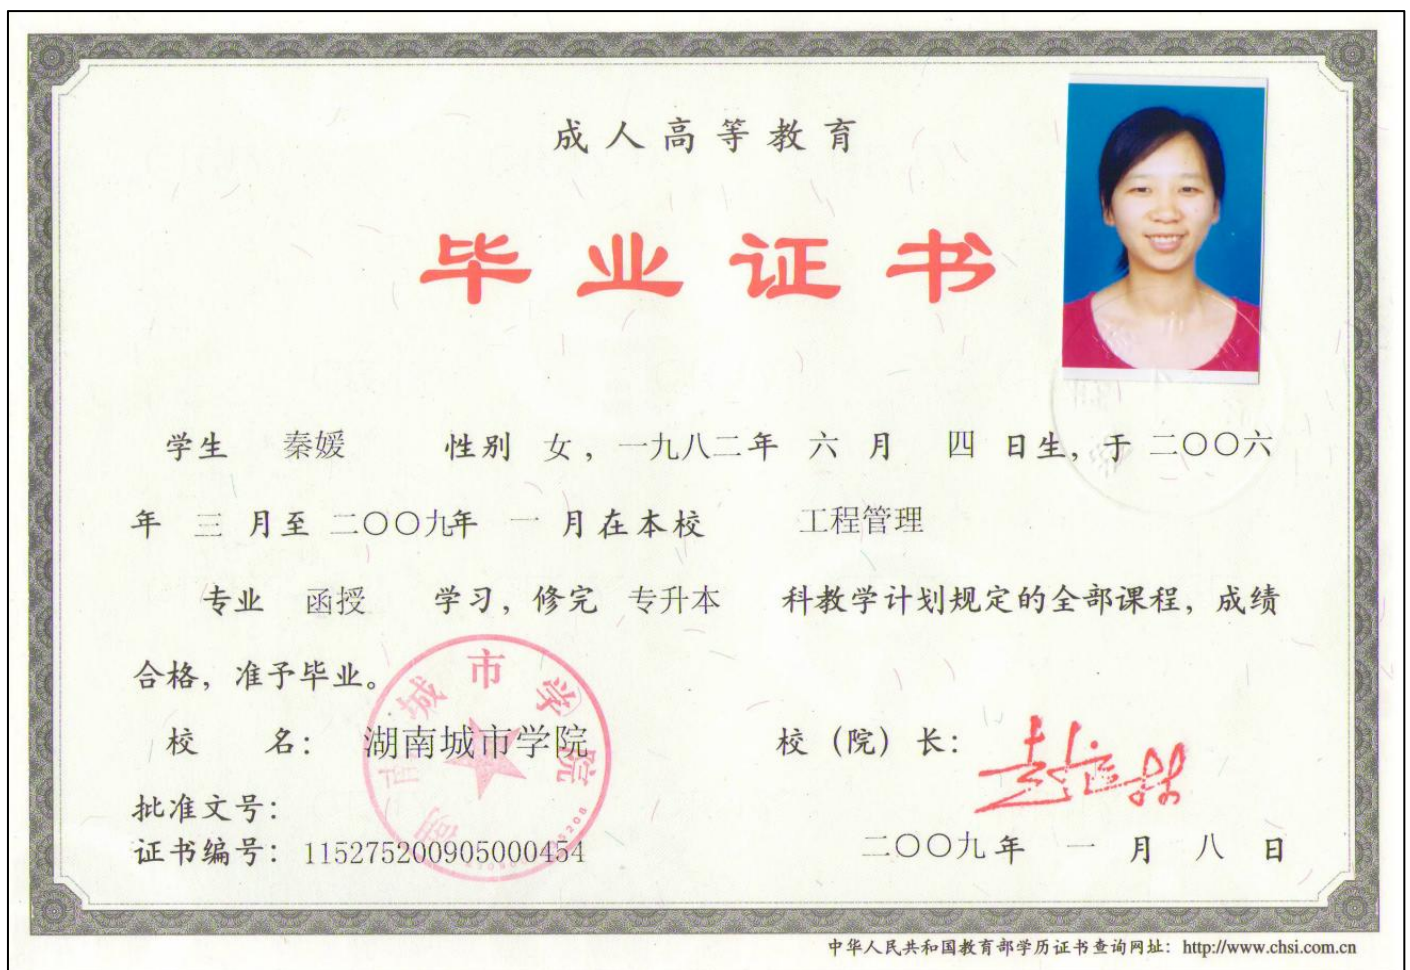 成人高等教育
毕业证书
学生 秦媛 性别 女，一九八二年 六 月 四 日生，于 二〇〇六
年 三 月至 二〇〇九年 一 月在本校 工程管理
专业 函授 学习，修完 专升本 科教学计划规定的全部课程，成绩
合格，准予毕业。
校 名： 湖南城市学院 校（院）长：
批准文号：
证书编号：115275200905000454
二〇〇九年 一 月 八 日
湖南城市学院
中华人民共和国教育部学历证书查询网址：http://www.chsi.com.cn